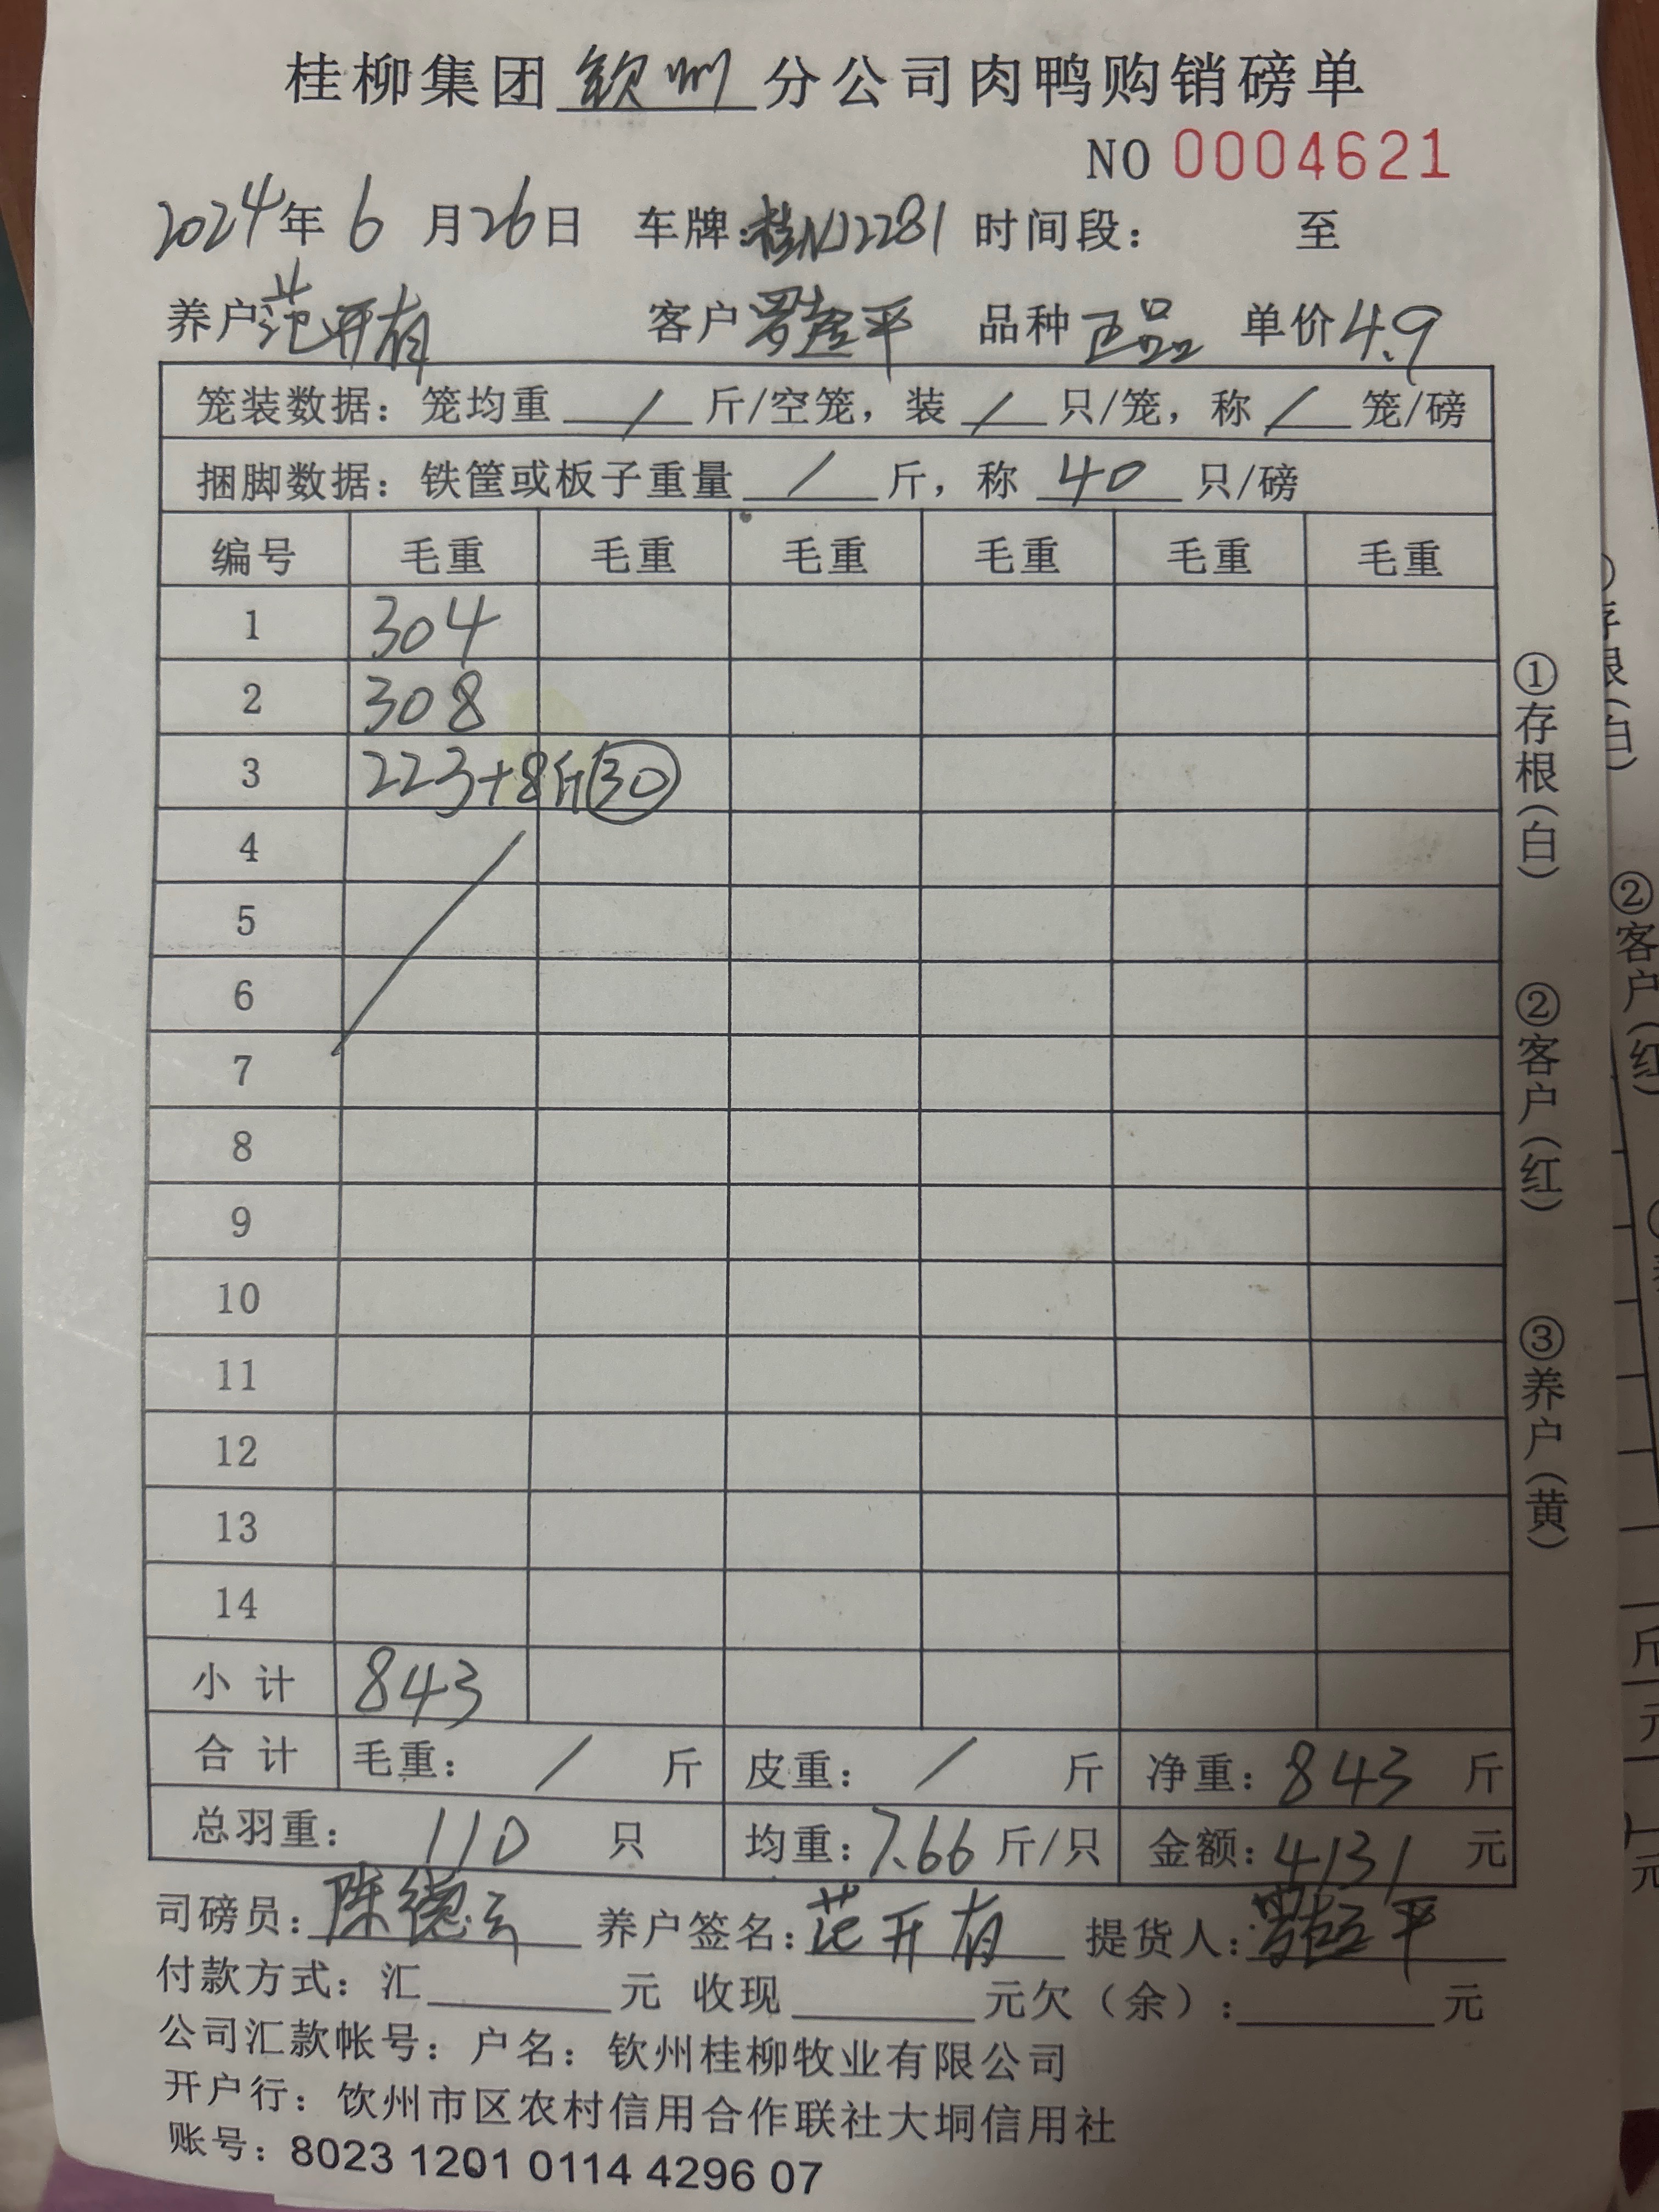 桂柳集团 钦州 分公司肉鸭购销磅单
NO 0004621
2024年 6 月26日 车牌:桂N12281 时间段: 至
养户 范开有 客户 罗 平 品种 正品 单价 4.9
笼装数据: 笼均重 / 斤/空笼, 装 / 只/笼, 称 / 笼/磅
捆脚数据: 铁筐或板子重量 / 斤, 称 40 只/磅
编号 毛重 毛重 毛重 毛重 毛重 毛重
1 304
2 308
3 223+8斤 30
4
5
6
7
8
9
10
11
12
13
14
小计 843
合计 毛重: / 斤 皮重: / 斤 净重: 843 斤
总羽重: 110 只 均重: 7.66 斤/只 金额: 4131 元
司磅员: 陈德云 养户签名: 范开有 提货人: 罗 平
付款方式: 汇 元 收现 元欠(余): 元
公司汇款帐号: 户名: 钦州桂柳牧业有限公司
开户行: 钦州市区农村信用合作联社大垌信用社
账号: 8023 1201 0114 4296 07
①存根(白) ②客户(红) ③养户(黄)
②客户(红